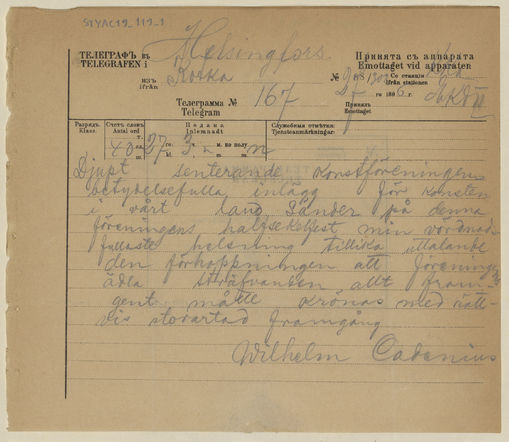 STYAC19_119_1
ТЕЛЕГРАФЪ въ
TELEGRAFEN i
Helsingfors
Принята съ аппарата
Emottaget vid apparaten
изъ
ifrån
Kotka
№
Со станціи
ifrån stationen
Телеграмма №
Telegram
167
Принял
Emottaget
27
го 189 6 г.
Разрядъ.
Klass.
Счетъ словъ
Antal ord
Подана
Inlemnadt
Служебныя отмѣтки:
Tjensteanmärkningar:
40
27 го 3 ч. м. по полу n
Djupt senterande konstföreningens
betydelsefulla inlägg för konsten
i vårt land sänder på denna
föreningens halfsekelfest min vördnads
fullaste helsning tillika uttalande
den förhoppningen att föreningens
ädla sträfvanden allt fram
gent måtte krönas med rätt-
vis storartad framgång
Wilhelm